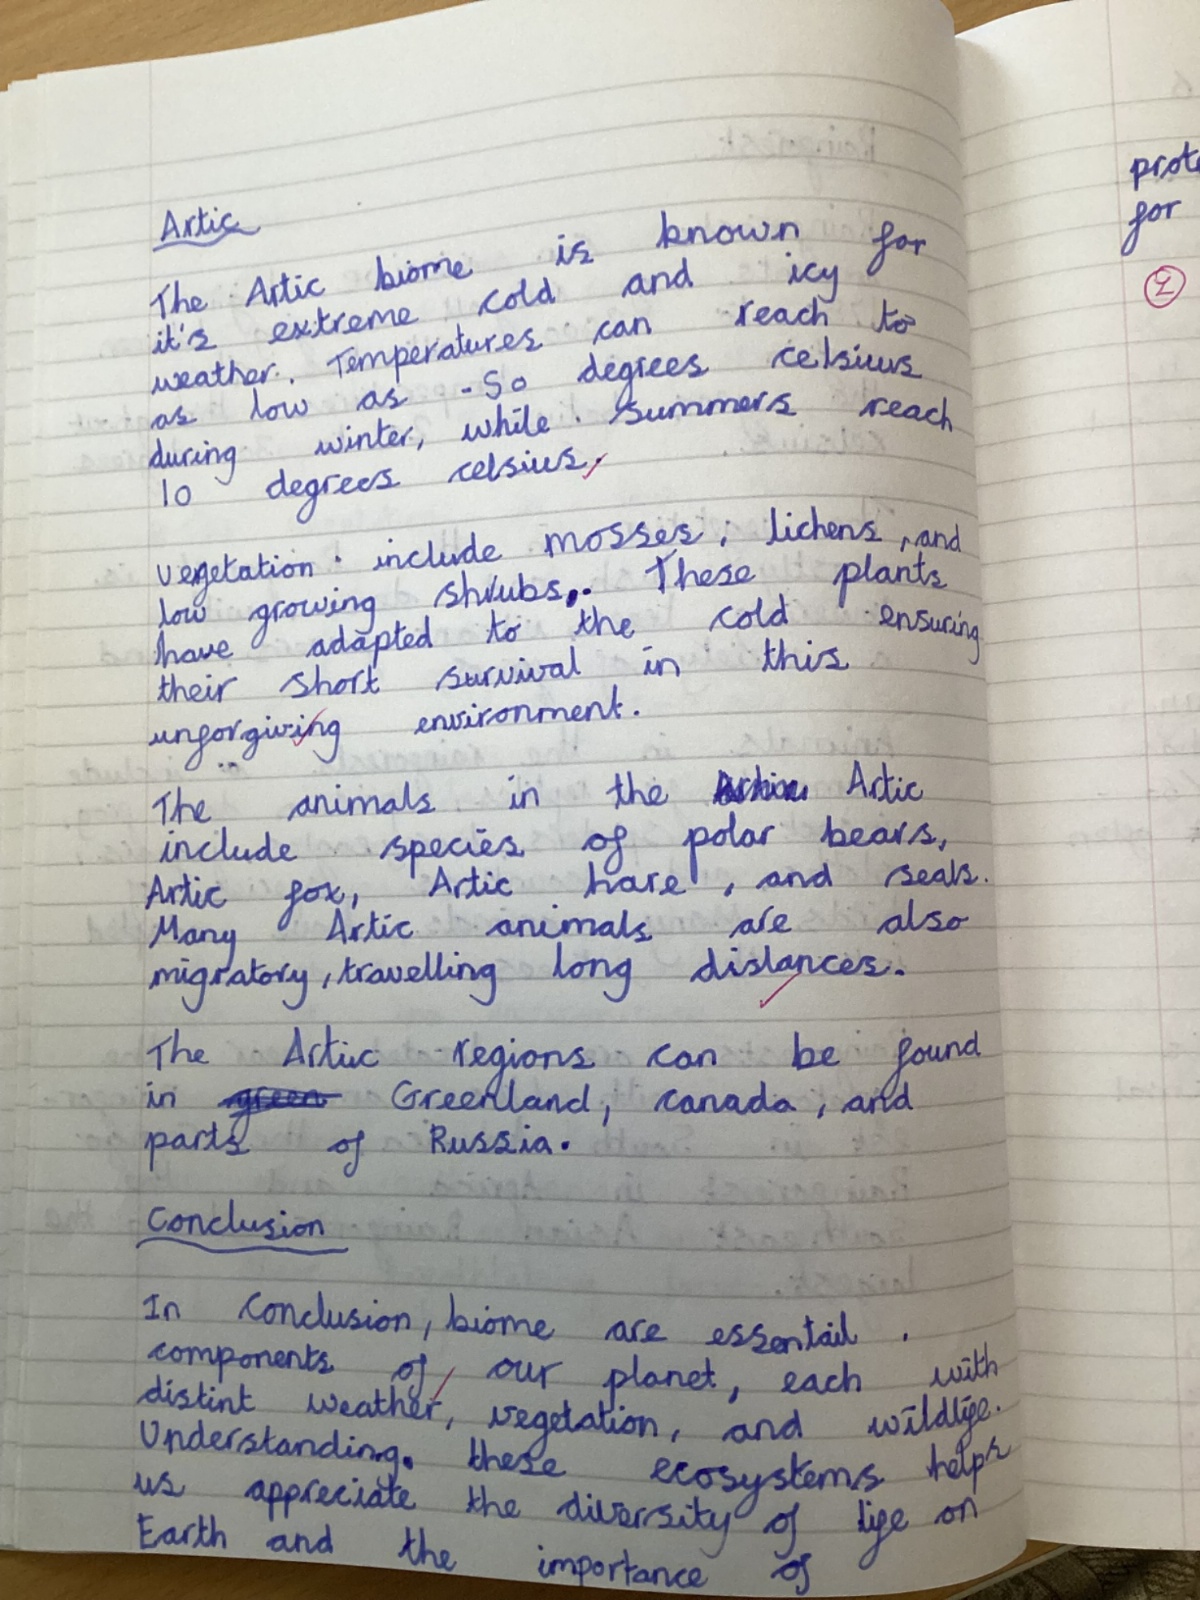 Artic
The Artic biome is known for
it's extreme cold and icy
weather. Temperatures can reach to
as low as -50 degrees celsius
during winter, while summers reach
10 degrees celsius.
vegetation include mosses, lichens, and
low growing shrubs. These plants
have adapted to the cold ensuring
their short survival in this
unforgiving environment.
The animals in the Artic
include species of polar bears,
Artic fox, Artic hare, and seals.
Many Artic animals are also
migratory, travelling long distances.
The Artic regions can be found
in green Greenland, canada, and
parts of Russia.
Conclusion
In conclusion, biome are essentail
components of our planet, each with
distint weather, vegetation, and wildlife.
Understanding. these ecosystems helps
us appreciate the diversity of life on
Earth and the importance of
for